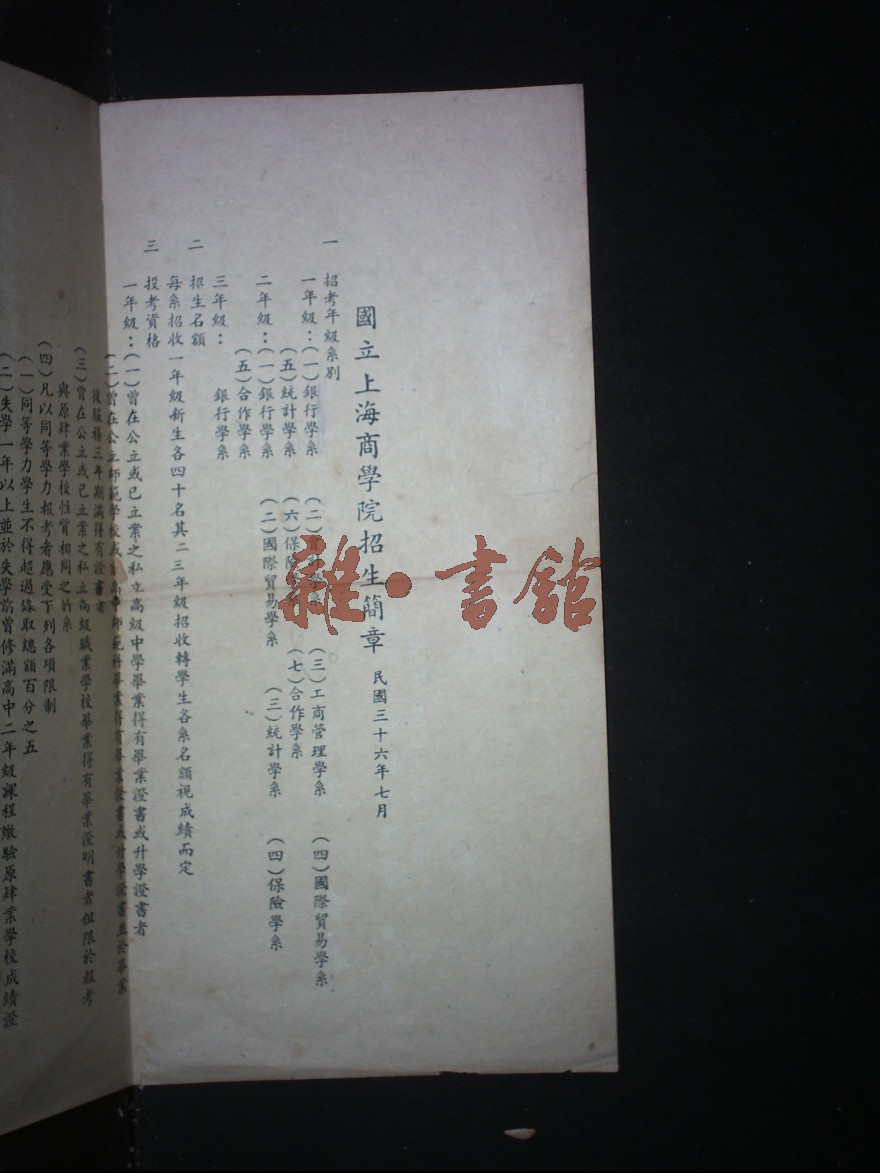 國立上海商學院招生簡章 民國三十六年七月
一 招考年級系別
一年級：(一)銀行學系 (二)會計學系 (三)工商管理學系 (四)國際貿易學系
(五)統計學系 (六)保險學系 (七)合作學系
二年級：(一)銀行學系 (二)國際貿易學系 (三)統計學系 (四)保險學系
(五)合作學系
三年級： 銀行學系
二 招生名額
每系招收一年級新生各四十名其二三年級招收轉學生各系名額視成績而定
三 投考資格
一年級：(一)曾在公立或已立案之私立高級中學畢業得有畢業證書或升學證書者
(二)曾在公立師範學校或高中師範科畢業得有畢業證書或升學證書並於畢業
後服務三年期滿得有證書者
(三)曾在公立或已立案之私立高級職業學校畢業得有畢業證明書者但限於報考
與原肄業學校性質相同之的系
(四)凡以同等學力報考者應受下列各項限制
(一)同等學力學生不得超過錄取總額百分之五
(二)失學一年以上並於失學前曾修滿高中二年級課程繳驗原肄業學校成績證
雜·書館